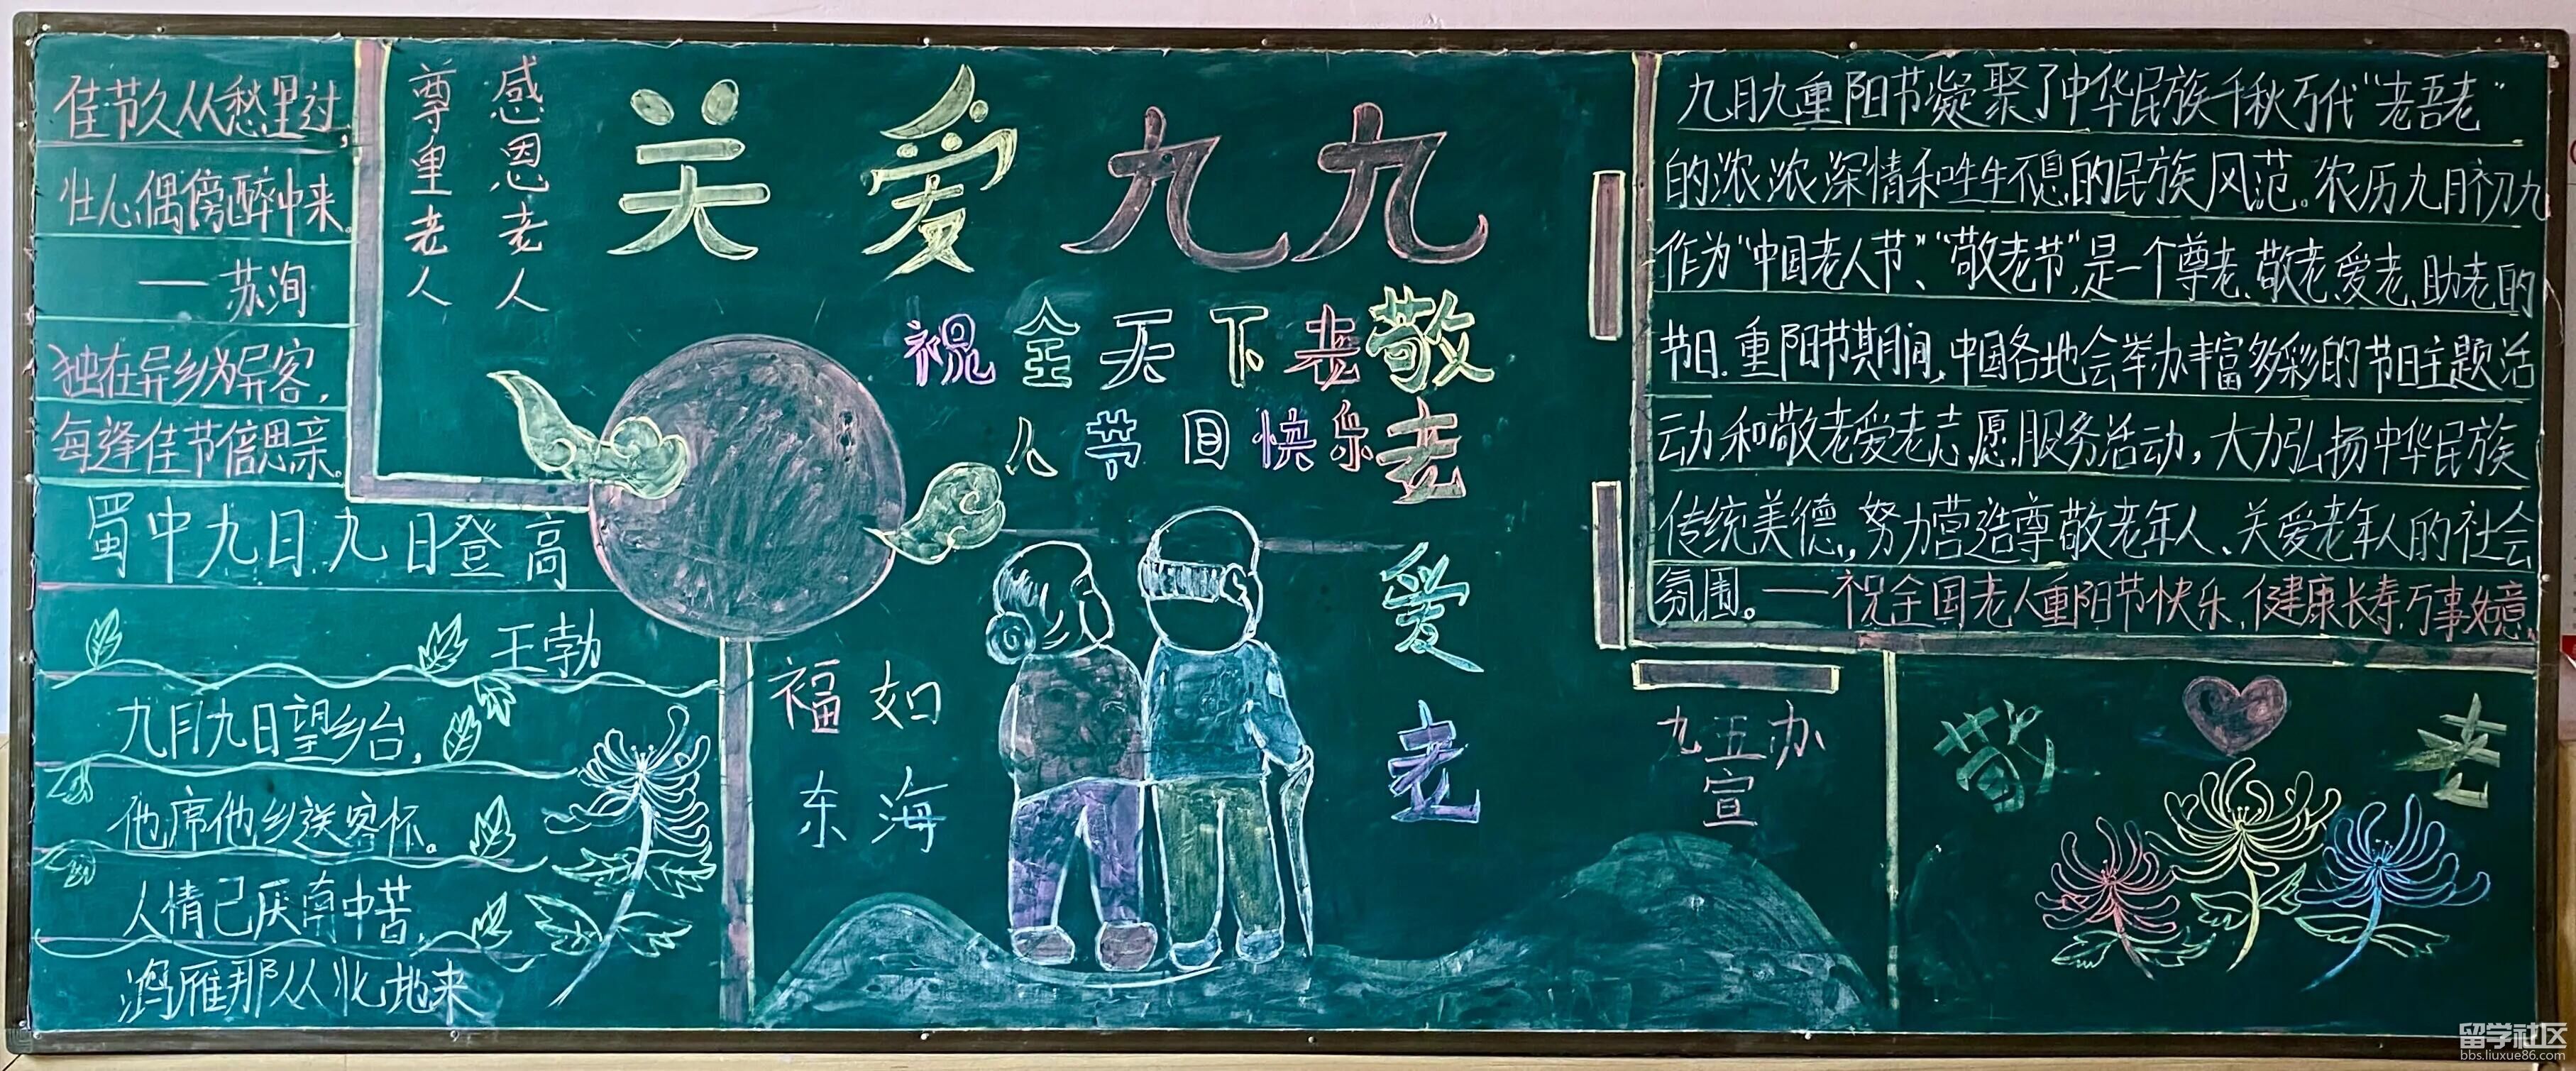 佳节久从愁里过,
壮心偶傍醉中来。
— 苏洵
独在异乡为异客,
每逢佳节倍思亲。
蜀中九日九日登高
王勃
九月九日望乡台,
他席他乡送客怀。
人情已厌南中苦,
鸿雁那从北地来
感恩老人
尊重老人
关爱九九
祝全天下老
人节日快乐
敬老
爱老
福如
东海
九月九重阳节凝聚了中华民族千秋万代“老吾老”
的浓浓深情和生生不息的民族风范。农历九月初九
作为“中国老人节”、“敬老节”,是一个尊老、敬老、爱老、助老的
节日.重阳节期间,中国各地会举办丰富多彩的节日主题活
动和敬老爱老志愿服务活动,大力弘扬中华民族
传统美德,努力营造尊敬老年人、关爱老年人的社会
氛围。——祝全国老人重阳节快乐,健康长寿,万事如意,
九五办
宣
敬 老
留学社区
bbs.liuxue86.com